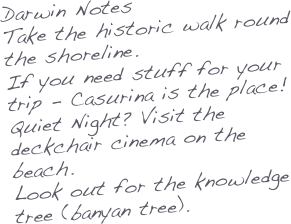 Darwin Notes
Take the historic walk round
the shoreline.
If you need stuff for your
trip - Casurina is the place!
Quiet Night? Visit the
deckchair cinema on the
beach.
Look out for the knowledge
tree (banyan tree).